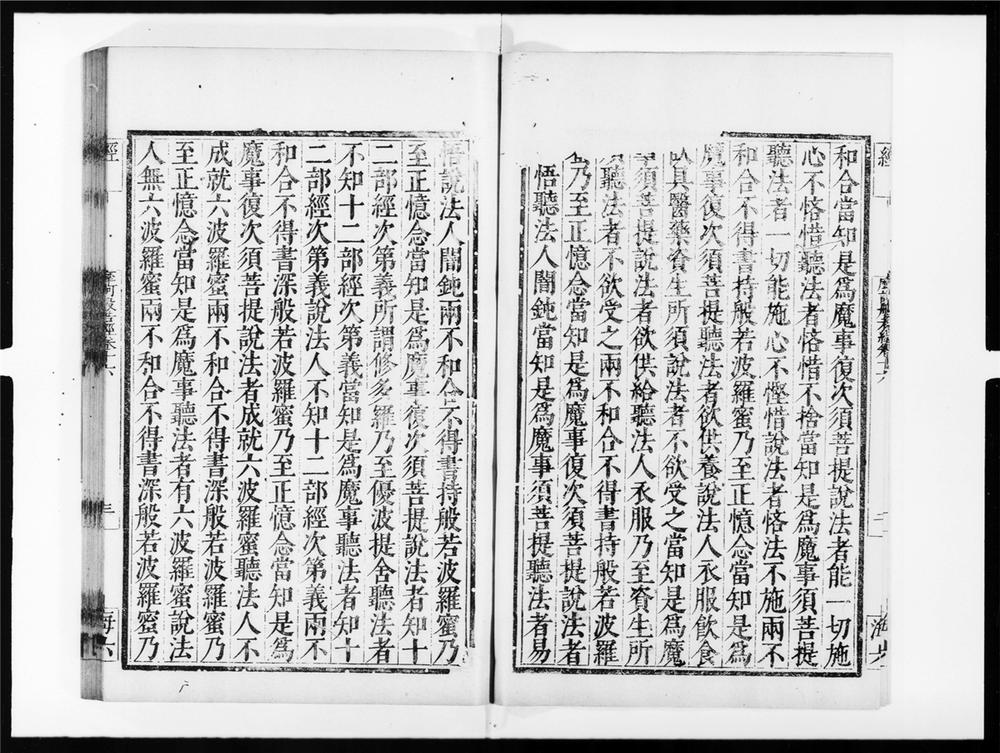 和合當知是爲魔事復次須菩提說法者能一切施
心不悋惜聽法者悋惜不捨當知是爲魔事須菩提
聽法者一切能施心不慳惜說法者悋法不施兩不
和合不得書持般若波羅蜜乃至正憶念當知是爲
魔事復次須菩提聽法者欲供養說法人衣服飲食
臥具醫藥資生所須說法者不欲受之當知是爲魔
事須菩提說法者欲供給聽法人衣服乃至資生所
須聽法者不欲受之兩不和合不得書持般若波羅
蜜乃至正憶念當知是爲魔事復次須菩提說法者
易悟聽法人闇鈍當知是爲魔事須菩提聽法者易
悟說法人闇鈍兩不和合不得書持般若波羅蜜乃
至正憶念當知是爲魔事復次須菩提說法者知十
二部經次第義所謂修多羅乃至優波提舍聽法者
不知十二部經次第義當知是爲魔事聽法者知十
二部經次第義說法人不知十二部經次第義兩不
和合不得書深般若波羅蜜乃至正憶念當知是爲
魔事復次須菩提說法者成就六波羅蜜聽法人不
成就六波羅蜜兩不和合不得書深般若波羅蜜乃
至正憶念當知是爲魔事聽法者有六波羅蜜說法
人無六波羅蜜兩不和合不得書深般若波羅蜜乃
經
卷十六
三
海六